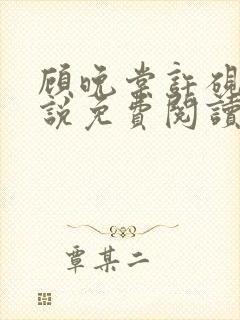 顧晚棠許硯
說免費閱讀
覃某二